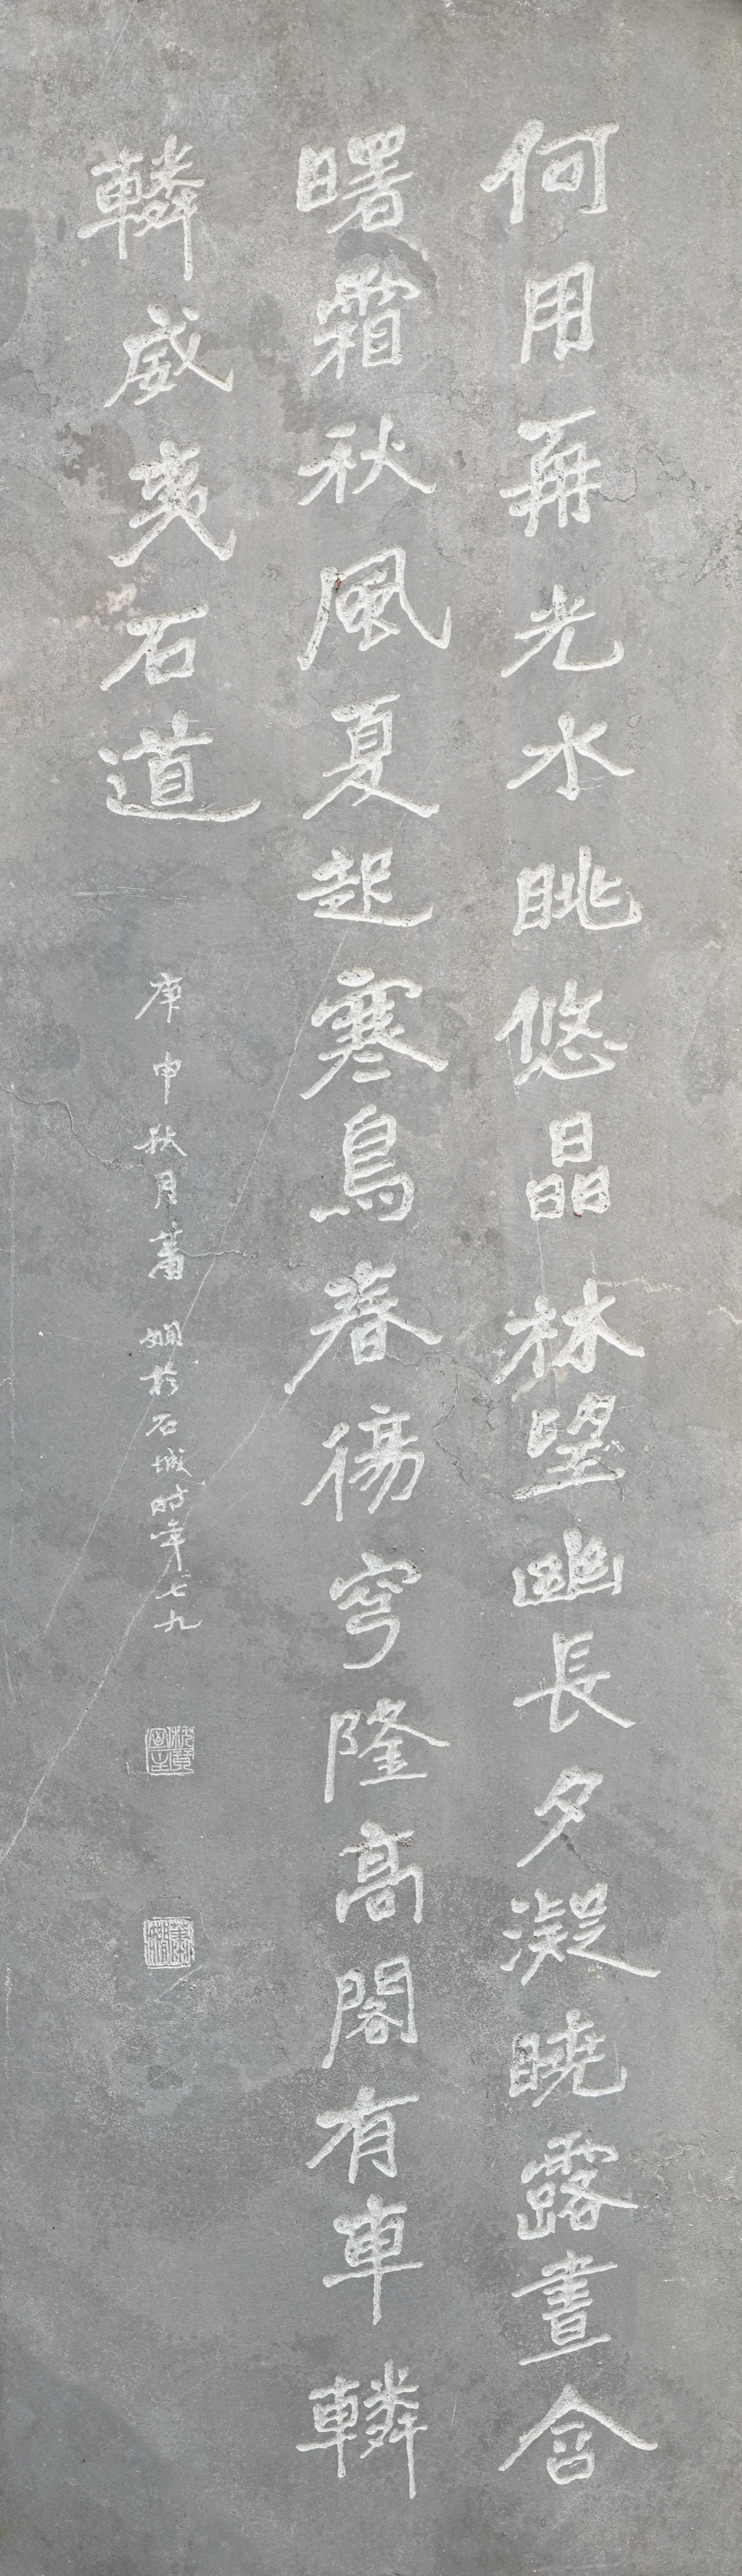 何用再光水眺悠晶林望幽長夕凝曉露晝含
曙霜秋風夏起寒鳥春傷穹隆高閣有車轔
轔威夷石道
庚申秋月蕭嫻於石城时年七九
枕琴室主
蕭嫻